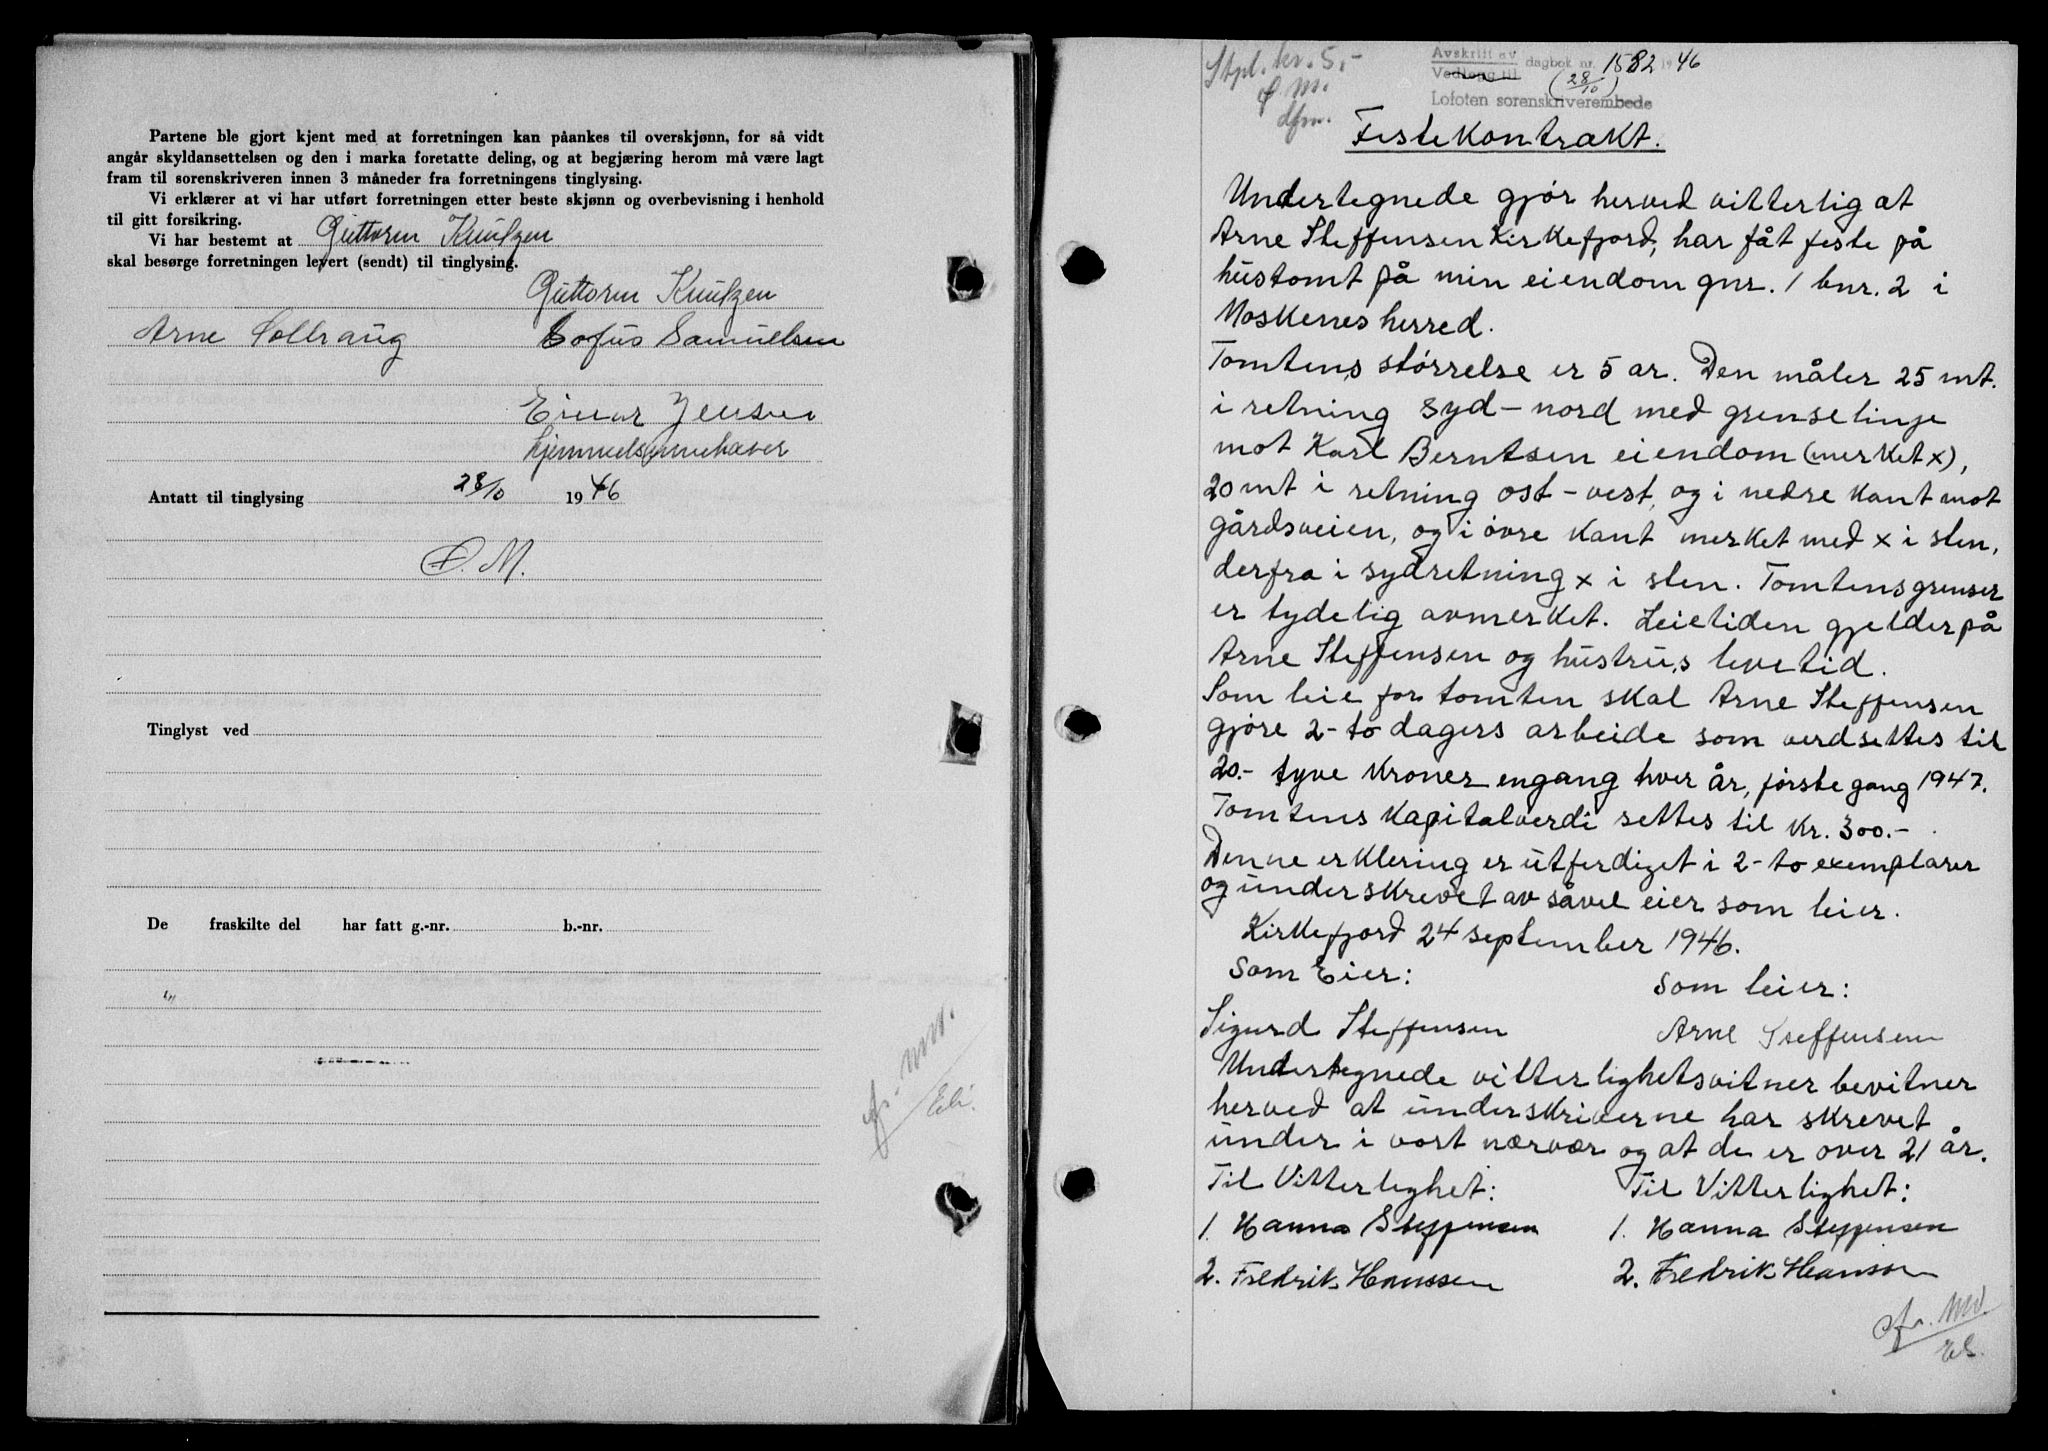 Partene ble gjort kjent med at forretningen kan påankes til overskjønn, for så vidt
angår skyldansettelsen og den i marka foretatte deling, og at begjæring herom må være lagt
fram til sorenskriveren innen 3 måneder fra forretningens tinglysing.
Vi erklærer at vi har utført forretningen etter beste skjønn og overbevisning i henhold
til gitt forsikring.
Vi har bestemt at Guttorm Knutzen
skal besørge forretningen levert (sendt) til tinglysing.
Guttorm Knutzen
Arne Solbraug Sofus Samuelsen
Einar Jensen
hjemmelsinnehaver
Antatt til tinglysing 28/10 1946
O.M.
Tinglyst ved
De fraskilte del har fatt g.-nr. b.-nr.
"
Stpl. kr. 5.-
O.M.
dfm.
Avskrift av
Vedlegg til dagbok nr. 1582 1946
(28/10)
Lofoten sorenskriverembede
Festekontrakt.
Undertegnede gjør herved vitterlig at
Arne Steffensen Kirkefjord, har fåt feste på
hustomt på min eiendom gnr. 1 bnr. 2 i
Moskenes herred.
Tomtens størrelse er 5 ar. Den måler 25 mt.
i retning syd - nord med grenselinje
mot Karl Berntsen eiendom (merket x),
20 mt i retning øst - vest, og i nedre kant mot
gårdsveien, og i øvre kant merket med x i sten,
derfra i sydretning x i sten. Tomtens grenser
er tydelig avmerket. Leietiden gjelder på
Arne Steffensen og hustru,s levetid.
Som leie for tomten skal Arne Steffensen
gjøre 2- to dagers arbeide som verdsettes til
20.- tyve kroner engang hver år, første gang 1947.
Tomtens kapitalverdi settes til kr. 300.-
Denne erklering er utferdiget i 2- to exemplarer
og underskrevet av såvel eier som leier.
Kirkefjord 24 september 1946.
Som Eier: Som leier:
Sigurd Steffensen Arne Steffensen
Undertegnede vitterlighetsvitner bevitner
herved at underskriverne har skrevet
under i vort nærvær og at de er over 21 år.
Til Vitterlighet: Til Vitterlighet:
1. Hanna Steffensen 1. Hanna Steffensen
2. Fredrik Hanssen 2. Fredrik Hanson